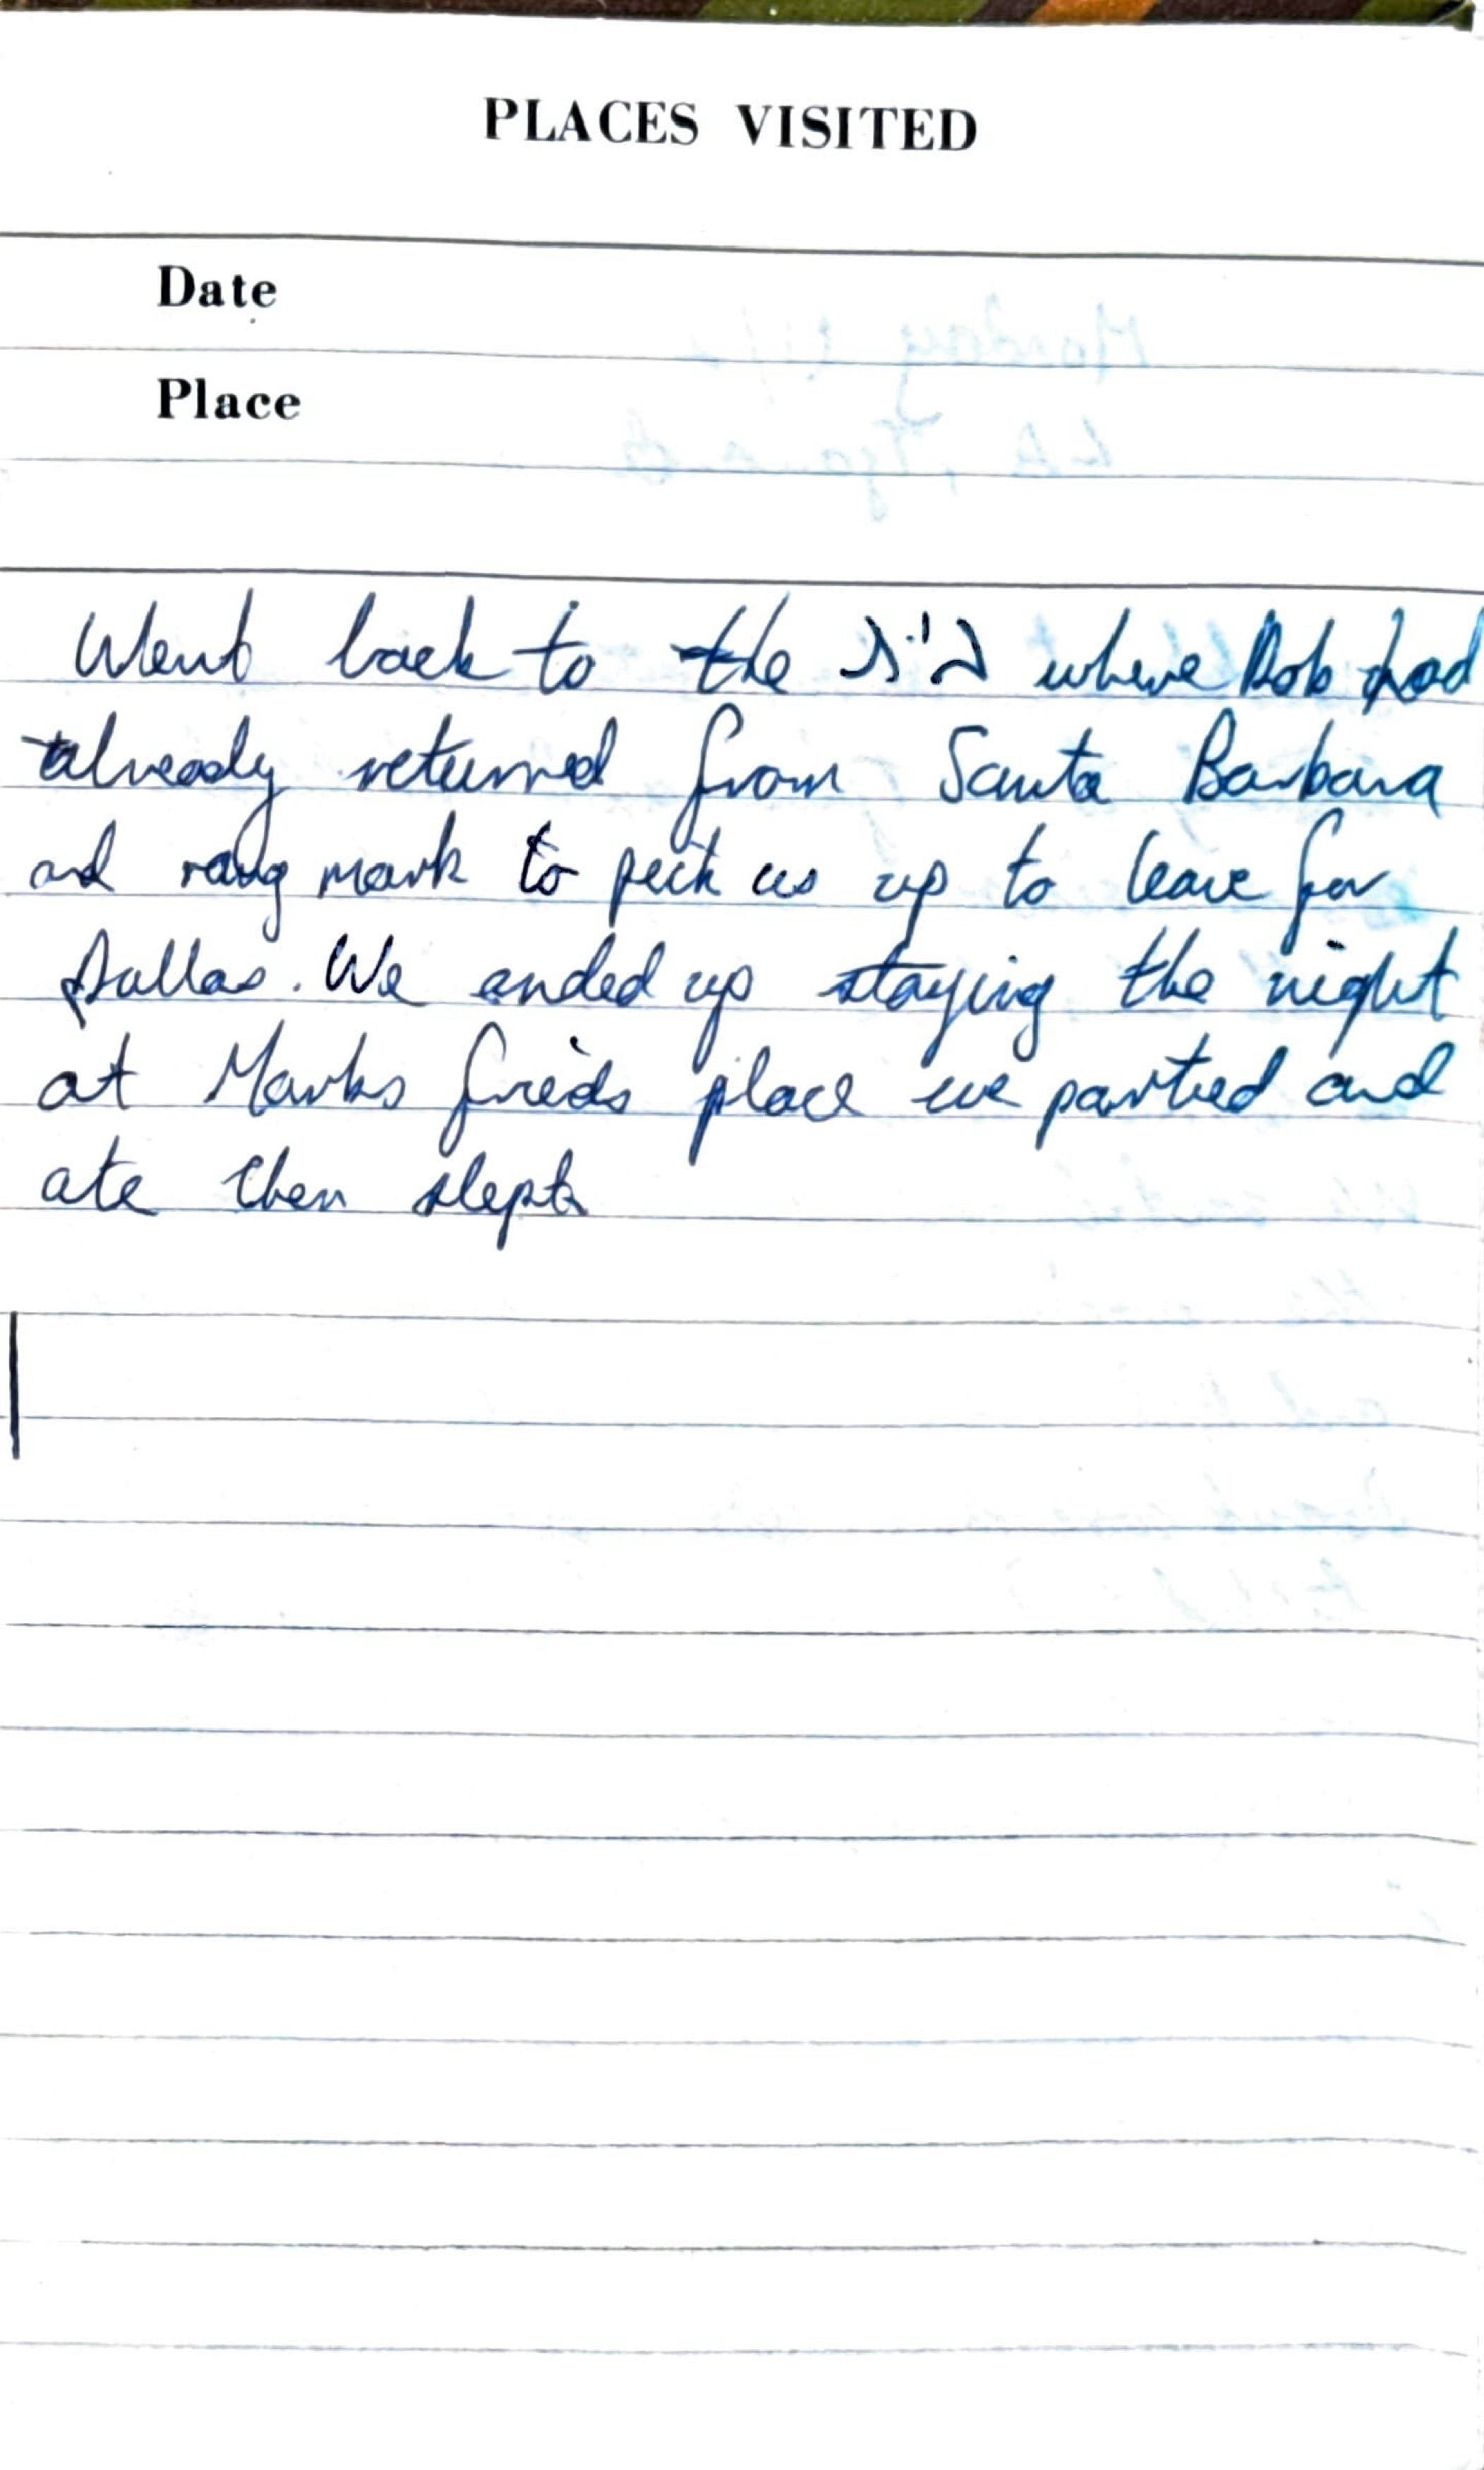 PLACES VISITED
Date
Place
Went back to the where Rob had
already returned from Santa Barbara
and rang mark to pick us up to leave for
Dallas. We ended up staying the night
at Marks frieds place we partied and
ate then slept